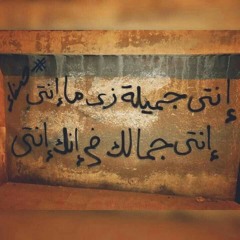 إنتى جميلة زى ما إنتى
إنتى جمالك في إنك إنتى